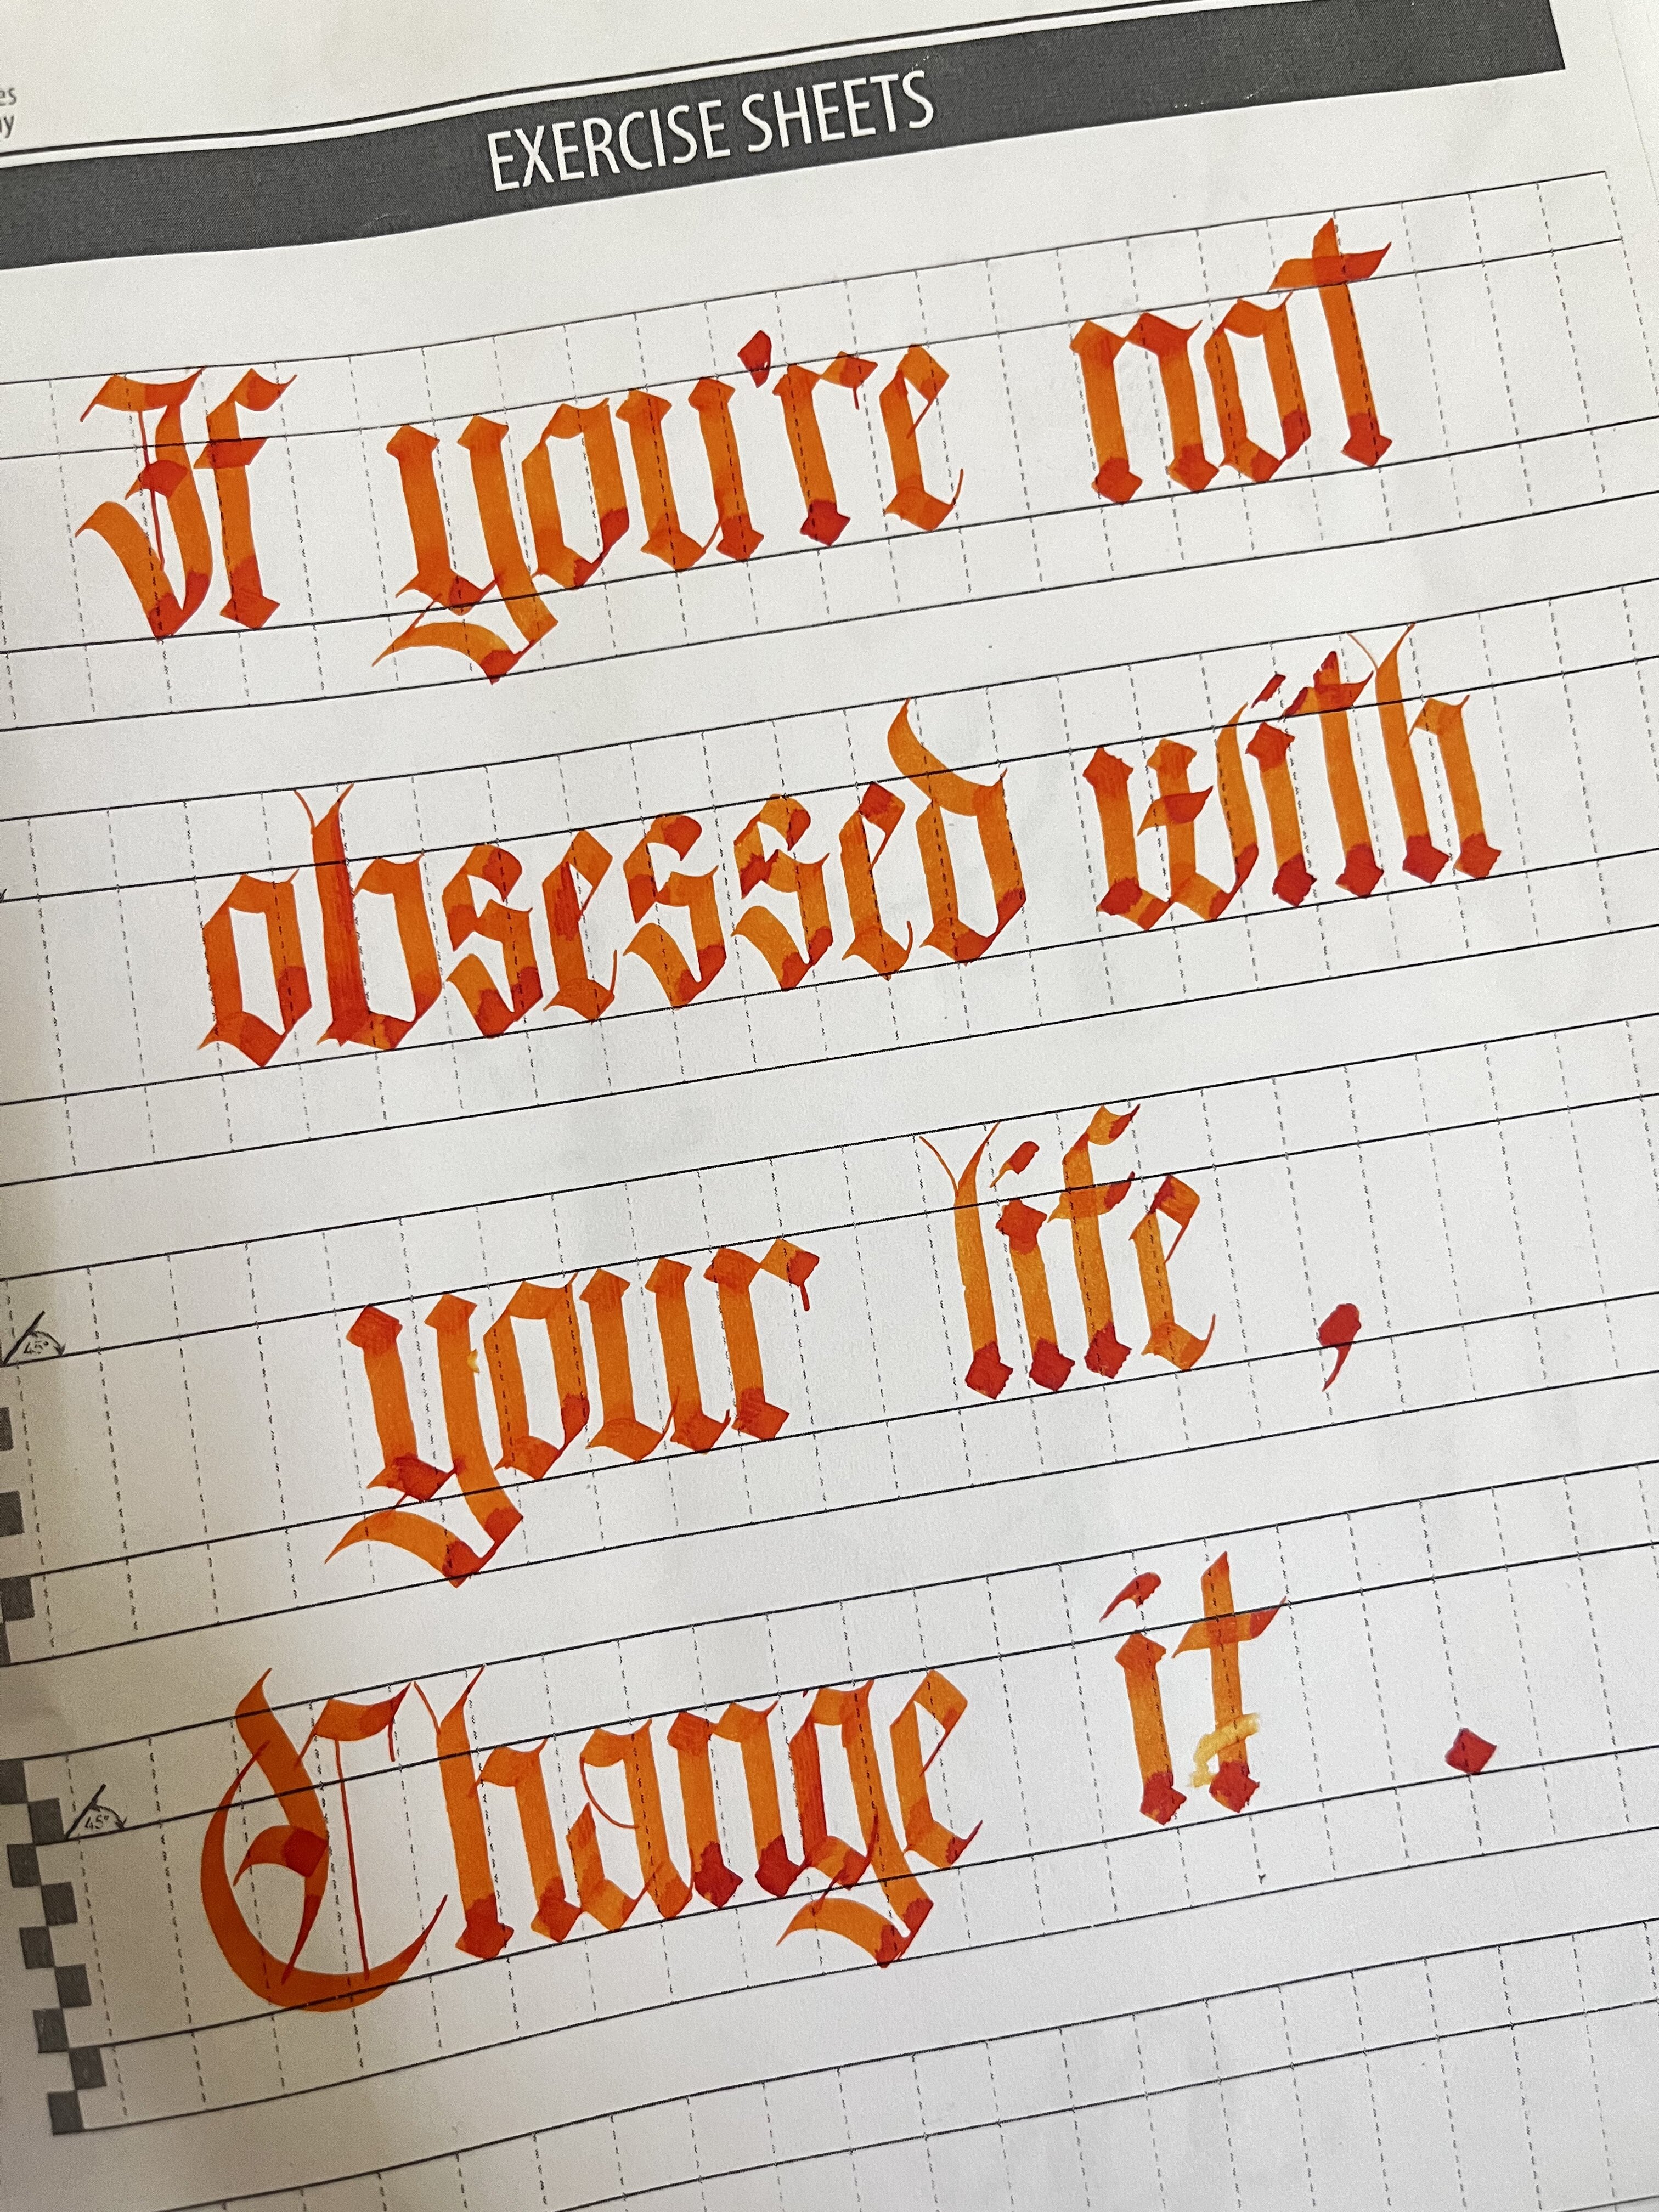 EXERCISE SHEETS
If you're not
obsessed with
your life,
Change it.
45°
45°